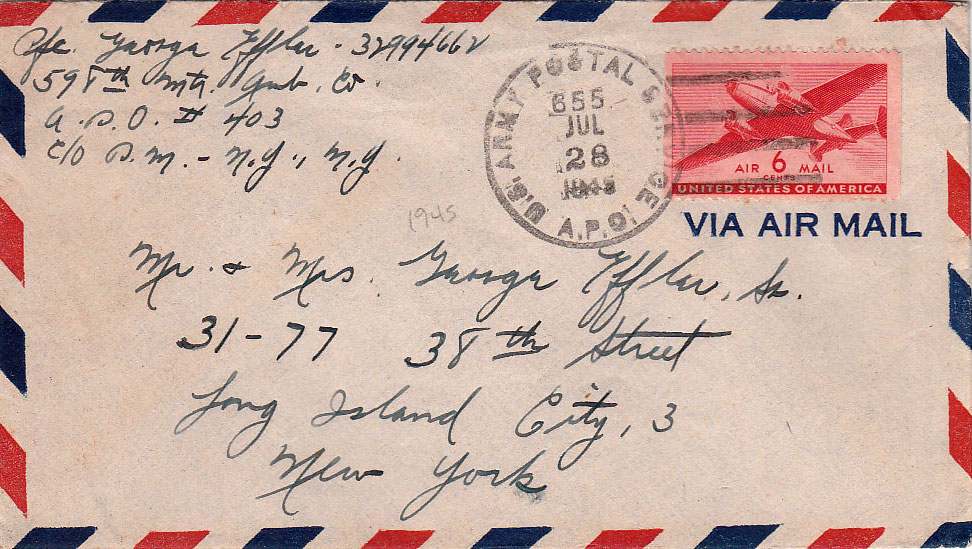 Pfc. George Effler - 32994662
598th Mtr. Amb. Co.
A.P.O. # 403
c/o P.M. - N.Y., N.Y.
U.S. ARMY POSTAL SERVICE
A.P.O.
655
JUL
28
1945
AIR 6 MAIL
CENTS
UNITED STATES OF AMERICA
VIA AIR MAIL
1945
Mr. & Mrs. George Effler, Sr.
31-77 38th Street
Long Island City, 3
New York